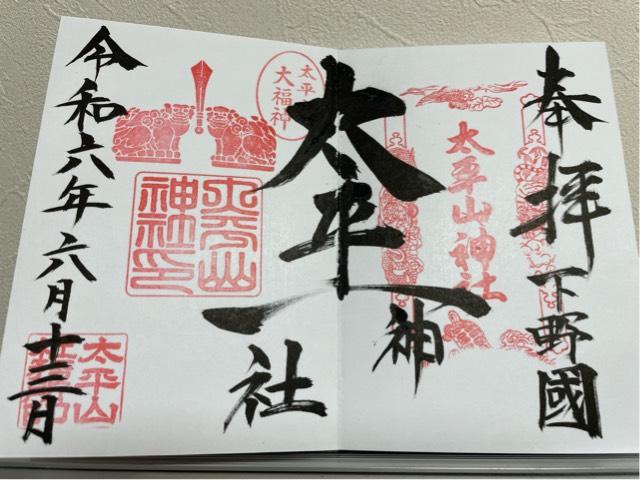 奉拝
下野國
太平山神社
太平山神社
太平
大福神
太平山
神社印
令和六年六月十三日
太平山